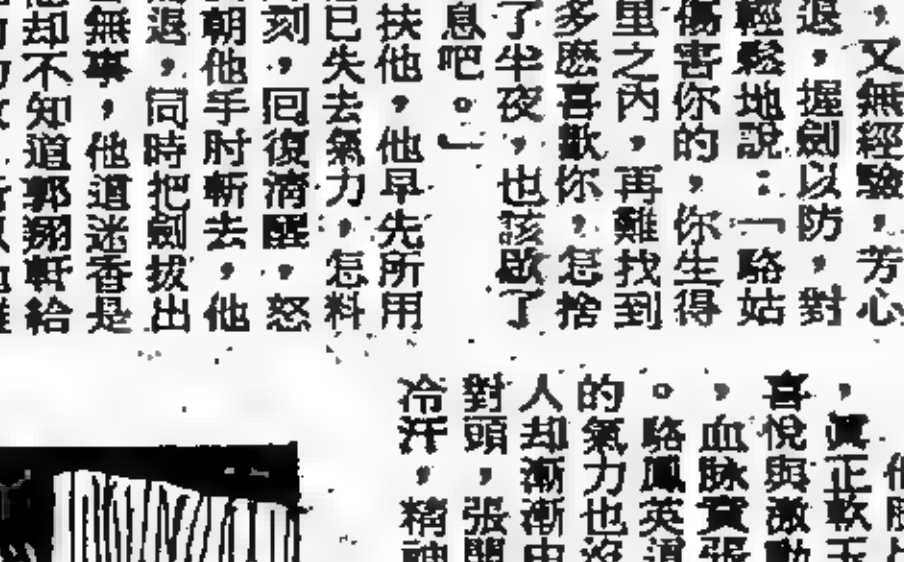 ，又無經驗，芳心
退，握劍以防，對
輕鬆地說：「駱姑
傷害你的，你生得
里之內，再難找到
多麼喜歡你，怎捨
了半夜，也該歇了
息吧。」
扶他，他早先所用
已失去氣力，怎料
刻，回復清醒，怒
朝他手肘斬去，他
退，同時把劍拔出
無事，他道迷香是
却不知道郭翔軒給
，真正軟玉
喜悅與激動
，血脉賁張
。駱鳳英道
的氣力也沒
人却漸漸由
對頭，張開
冷汗，精神